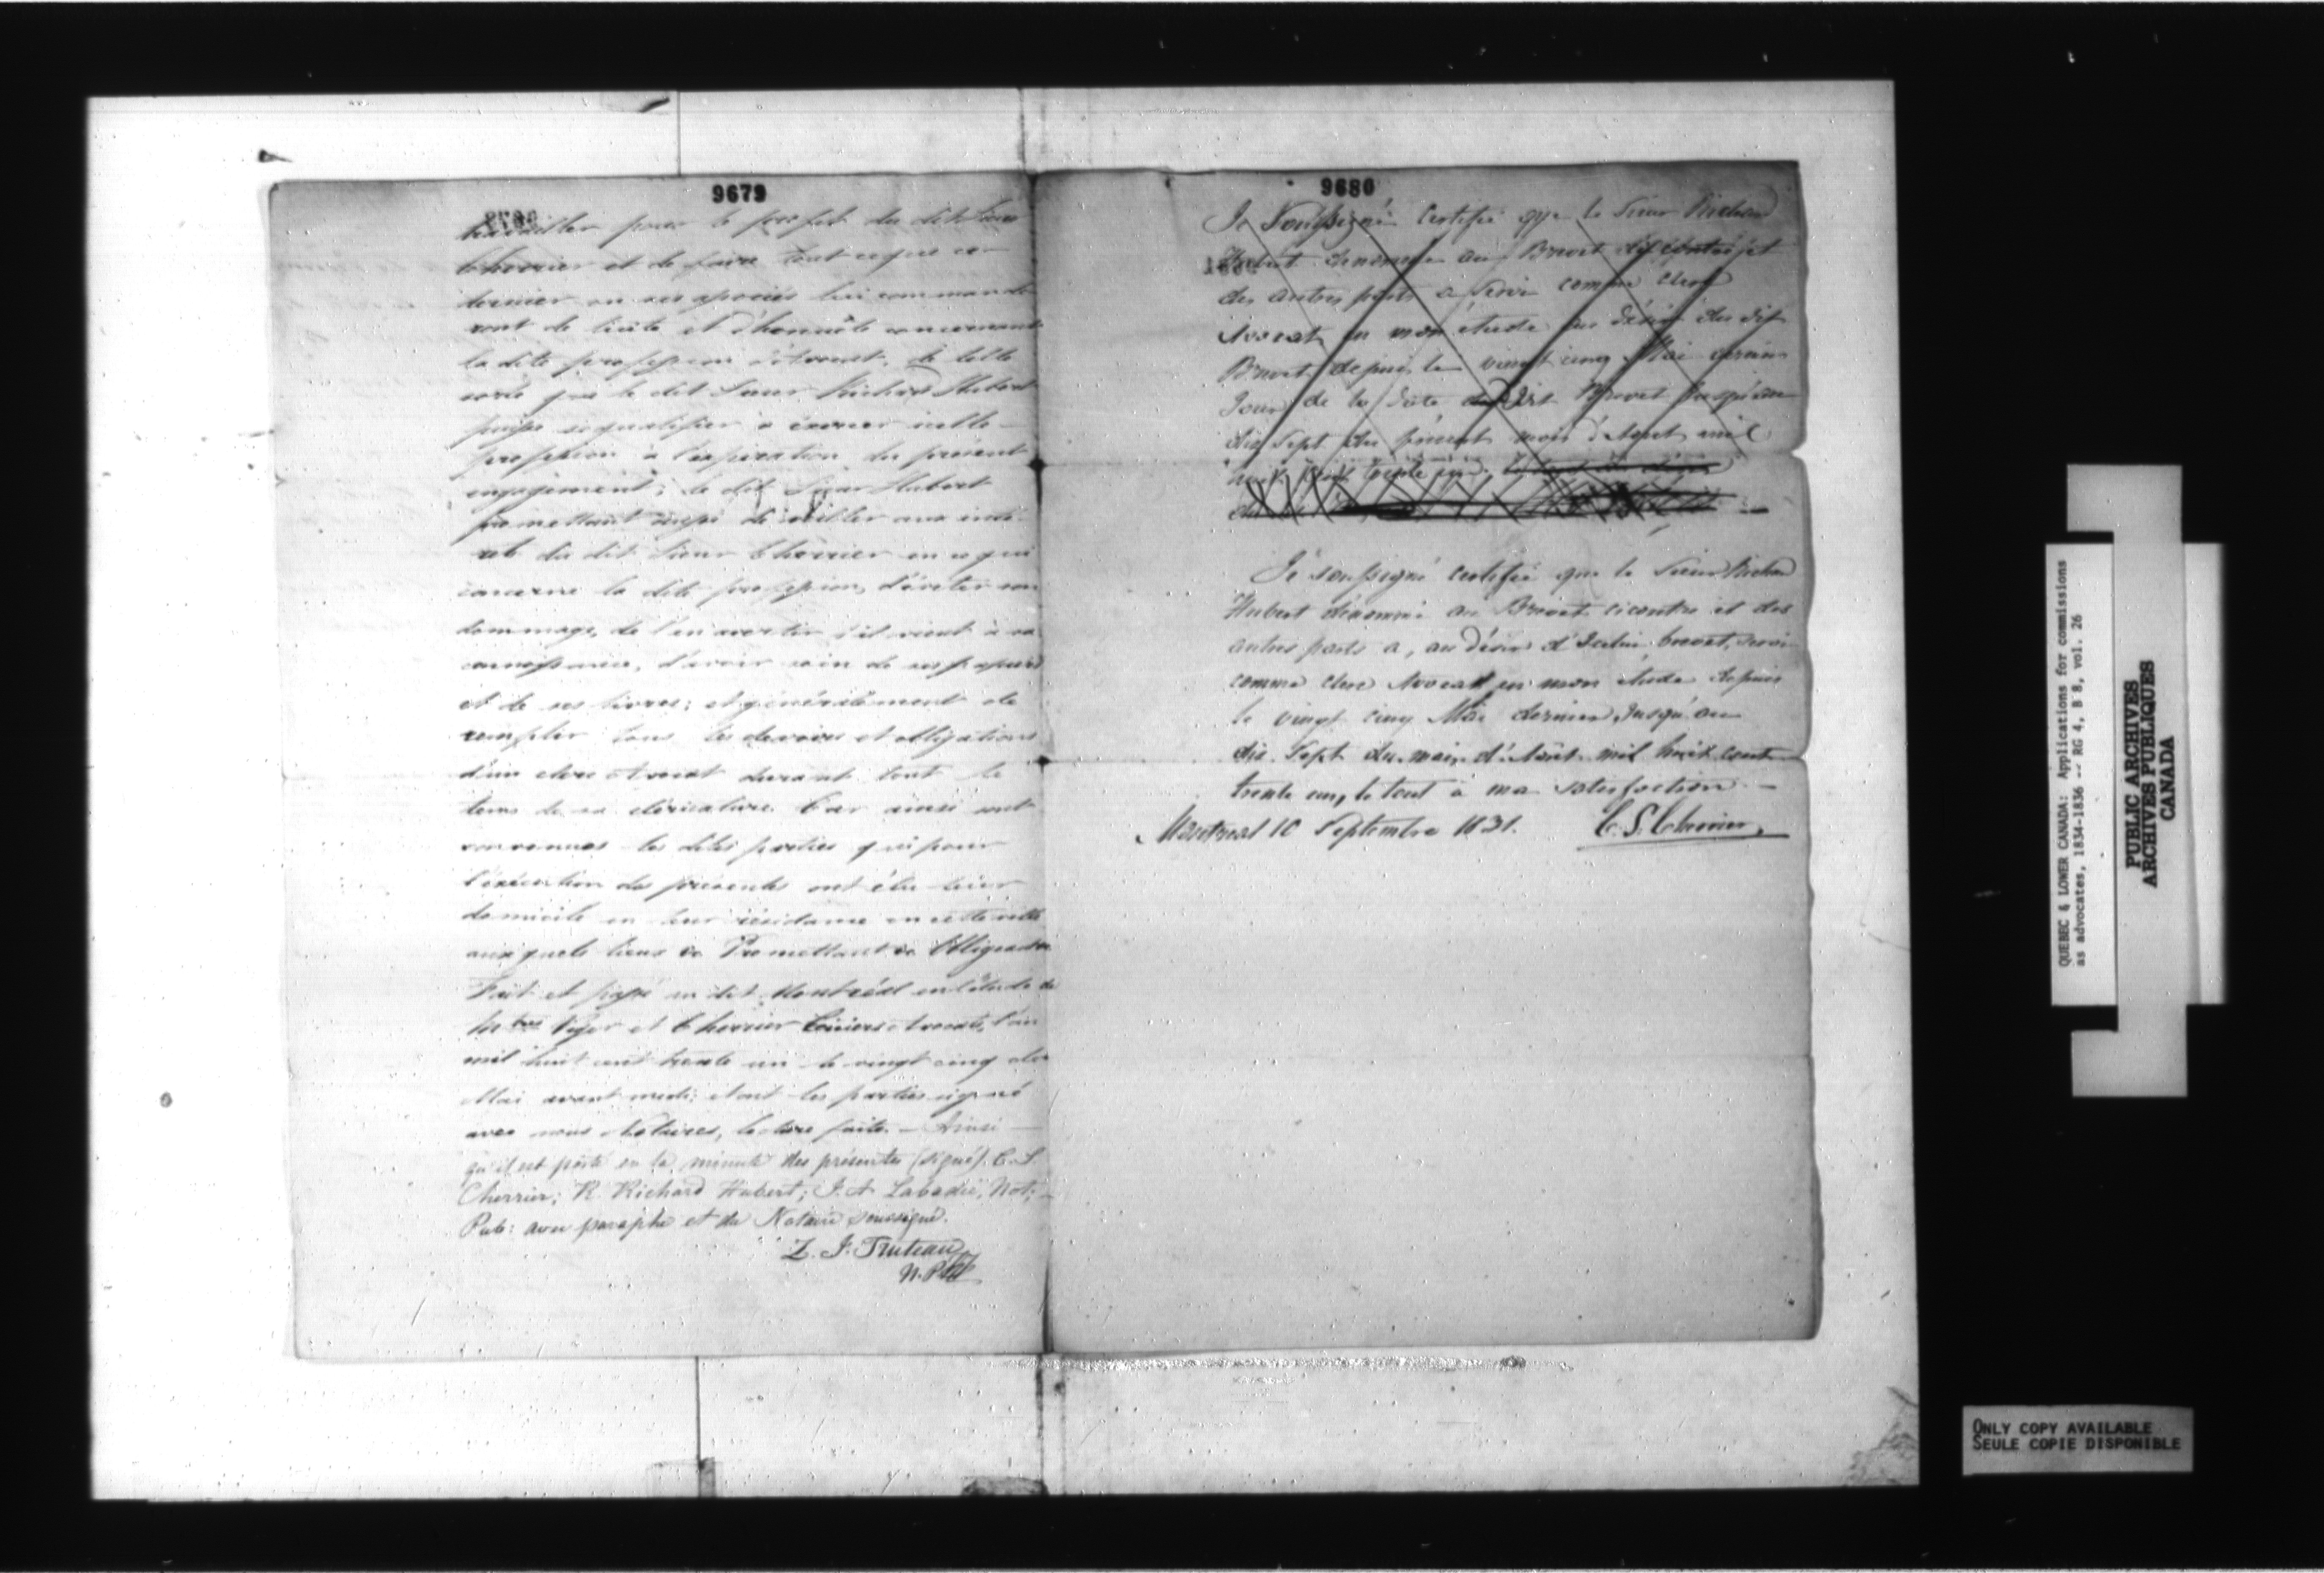 9679
travailler pour le profit du dit Sieur
Cherrier et de faire tout ce que ce
dernier ou ses associés lui commande
ront de licite et d'honnête concernant
la dite profession d'avocat, de telle
sorte que le dit Sieur Richard Hubert
puisse se qualifier à exercer icelle
profession à l'expiration du présent
engagement; le dit Sieur Hubert
promettant aussi de veiller aux inté-
rêts du dit Sieur Cherrier en ce qui
concerne la dite profession, d'éviter son
dommage, de l'en avertir s'il vient à sa
connaissance, d'avoir soin de ses papiers
et de ses livres; et généralement de
remplir tous les devoirs et obligations
d'un clerc avocat durant tout le
tems de sa cléricature. Car ainsi sont
convenues les dites parties qui pour
l'exécution des présentes ont élu leur
domicile en leur résidence en cette ville
auxquels lieux &a Promettant &a Obligeant &a
Fait et passé au dit Montréal en l'étude de
Mtres Viger et Cherrier Ecuiers avocats, l'an
mil huit cent trente un le vingt cinq de
Mai avant midi; et ont les parties signé
avec nous Notaires, lecture faite. — Ainsi —
qu'il est porté en la minute des présentes (signé) C. S.
Cherrier; R. Richard Hubert; J. A Labadie, Not; —
Pub: avec paraphe et du Notaire soussigné.
Z. J. Truteau
N. P.
9680
Je Soussigné Certifie que le Sieur Richard
Hubert dénommé au Brevet
des autres parts a servi comme clerc
Avocat en mon étude au désir du dit
Brevet depuis le vingt cinq Mai dernier
Jour de la date du dit Brevet jusqu'au
dix Sept du présent mois d'Aout mil
huit cent trente un.
Je soussigné certifie que le Sieur Richard
Hubert dénommé au Brevet cicontre et des
autres parts a, au désir d'Icelui brevet, servi
comme clerc Avocat en mon étude depuis
le vingt cinq Mai dernier, Jusqu'au
dix Sept du mois d'Août mil huit cent
trente un, le tout à ma satisfaction —
Montreal 10 Septembre 1831. C. S. Cherrier
QUEBEC & LOWER CANADA: Applications for commissions
as advocates, 1834-1836 -- RG 4, B 8, vol. 26
PUBLIC ARCHIVES
ARCHIVES PUBLIQUES
CANADA
ONLY COPY AVAILABLE
SEULE COPIE DISPONIBLE